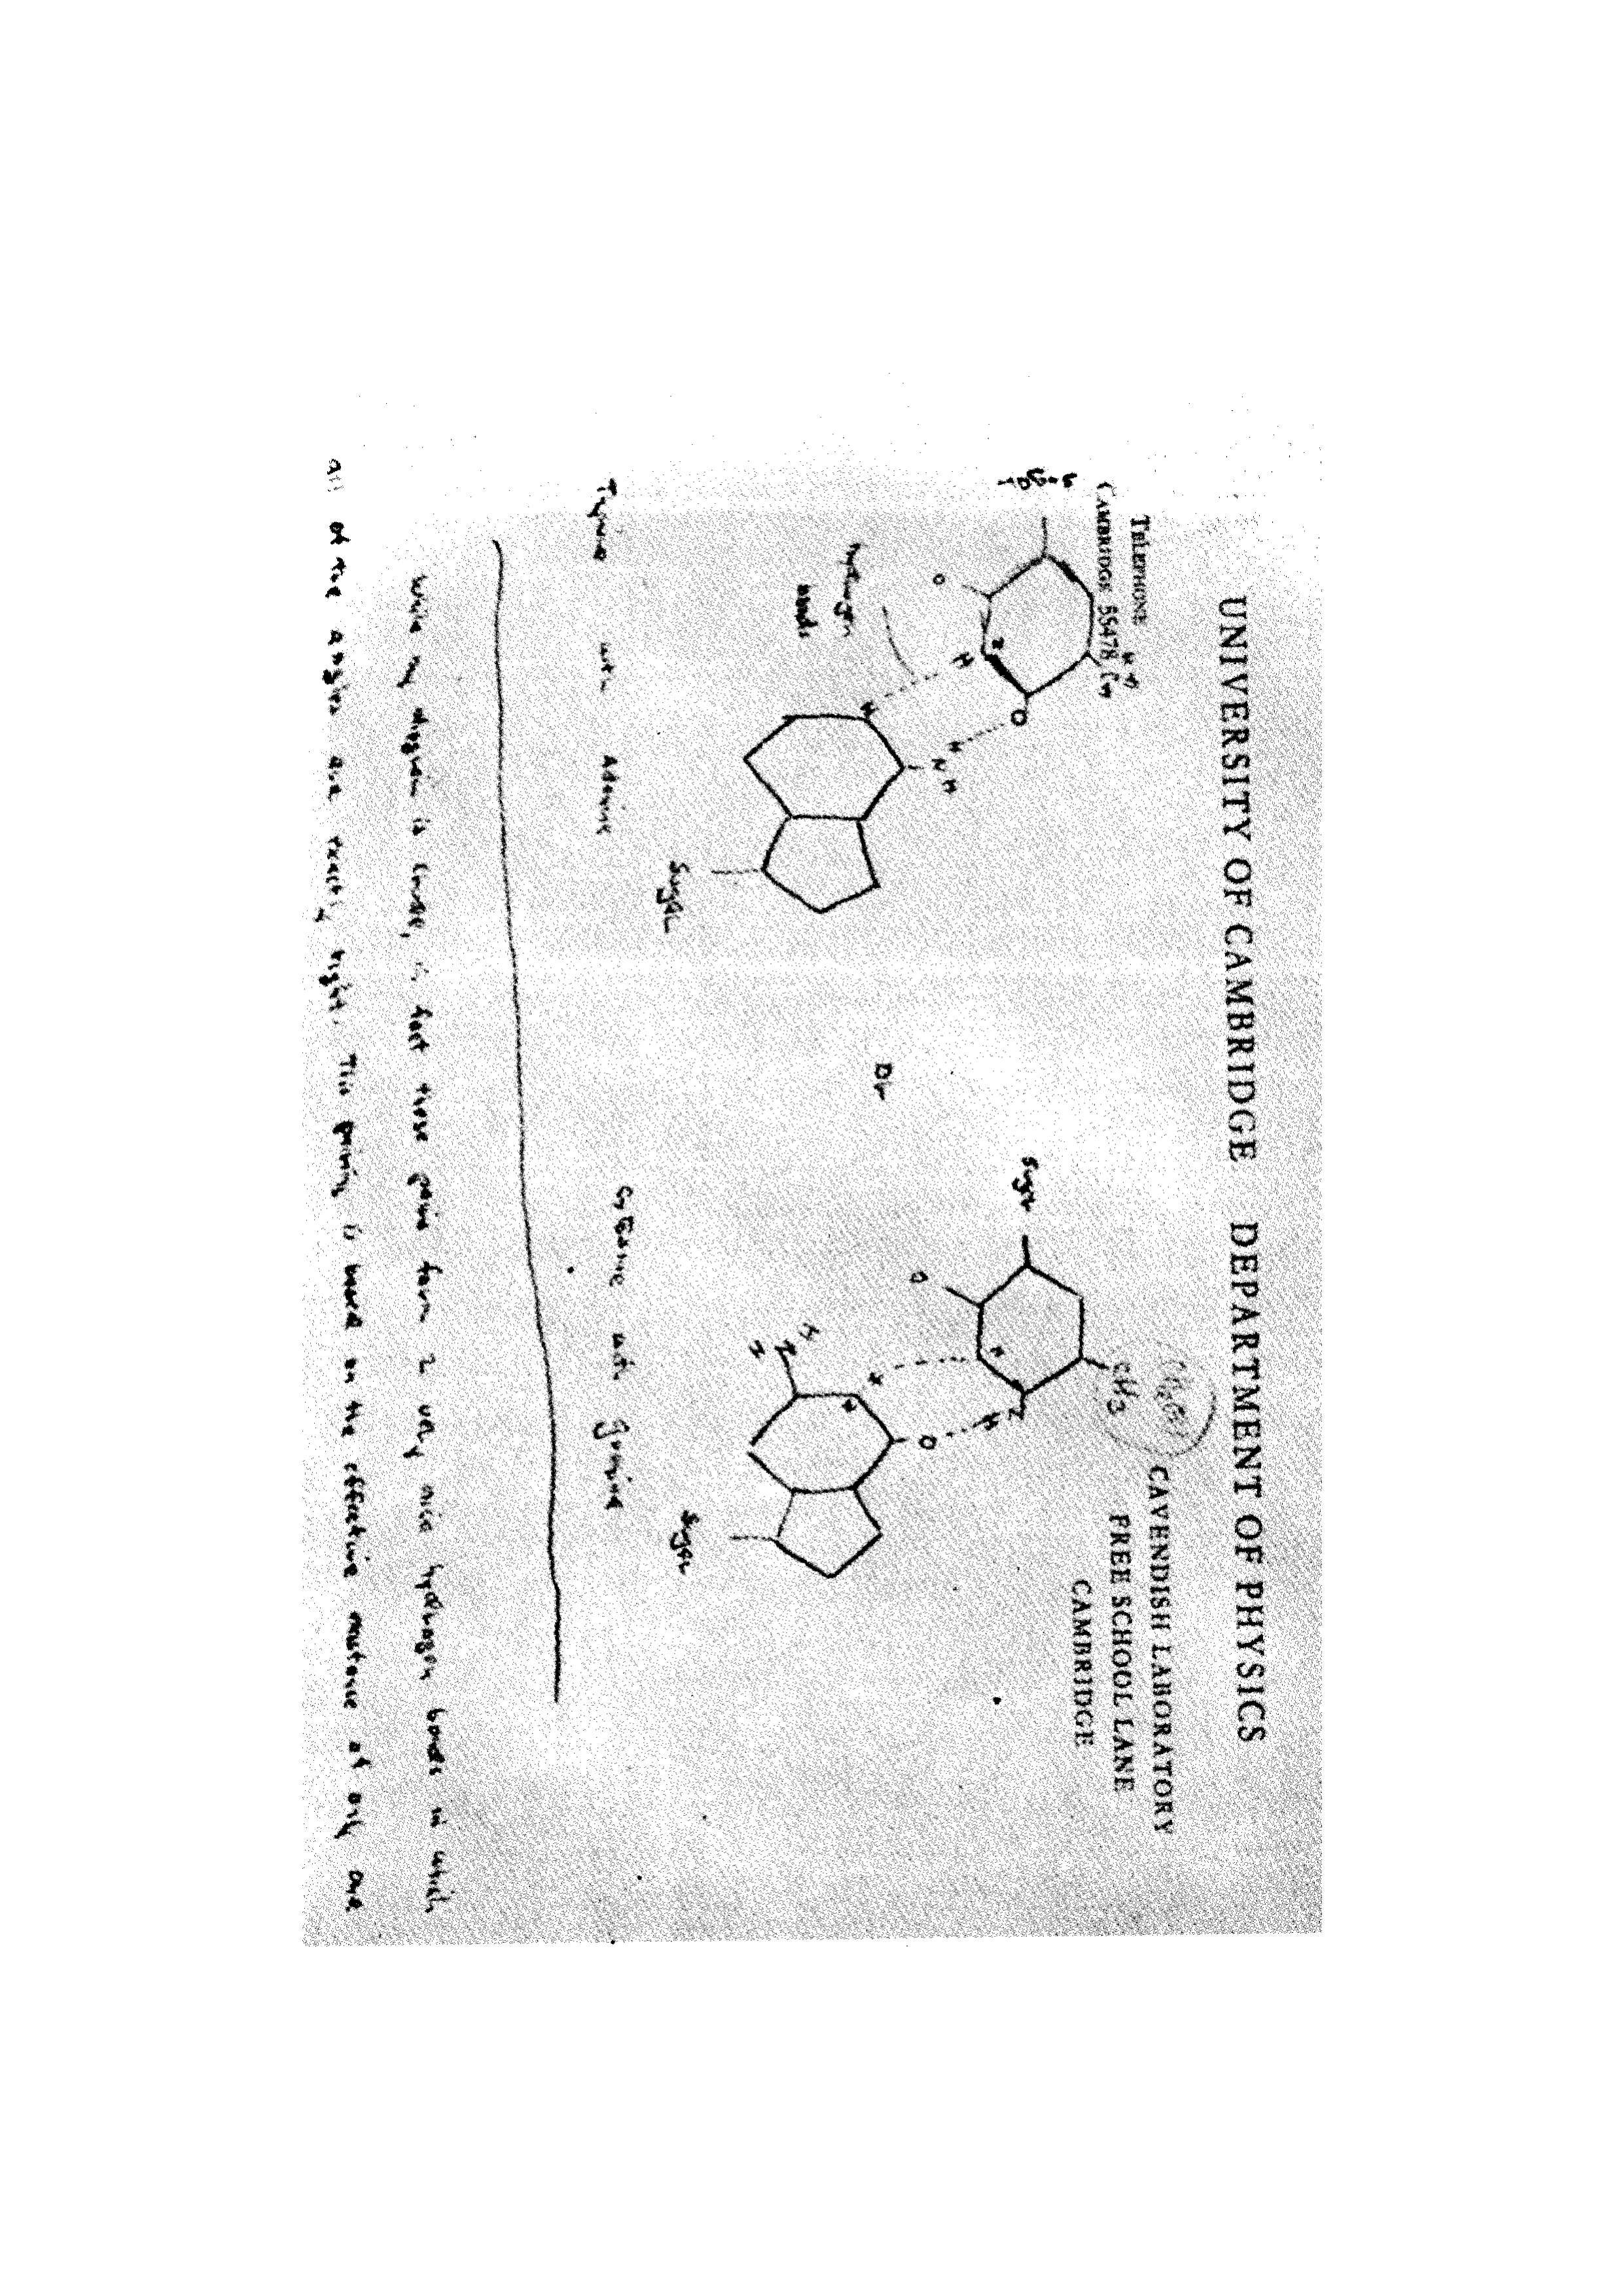 UNIVERSITY OF CAMBRIDGE DEPARTMENT OF PHYSICS
TELEPHONE
CAMBRIDGE 55478
CAVENDISH LABORATORY
FREE SCHOOL LANE
CAMBRIDGE
CH3
CH3
sugar
O
N
H
O
hydrogen
bonds
N
H
N
H
Sugar
Thymine with Adenine
or
Sugar
O
N
N
H
H
N
H
O
H
N
Sugar
Cytosine with guanine
while my diagram is crude, in fact these pairs form 2 very nice hydrogen bonds in which
all of the angles are exactly right. This pairing is based on the effective existence of only one